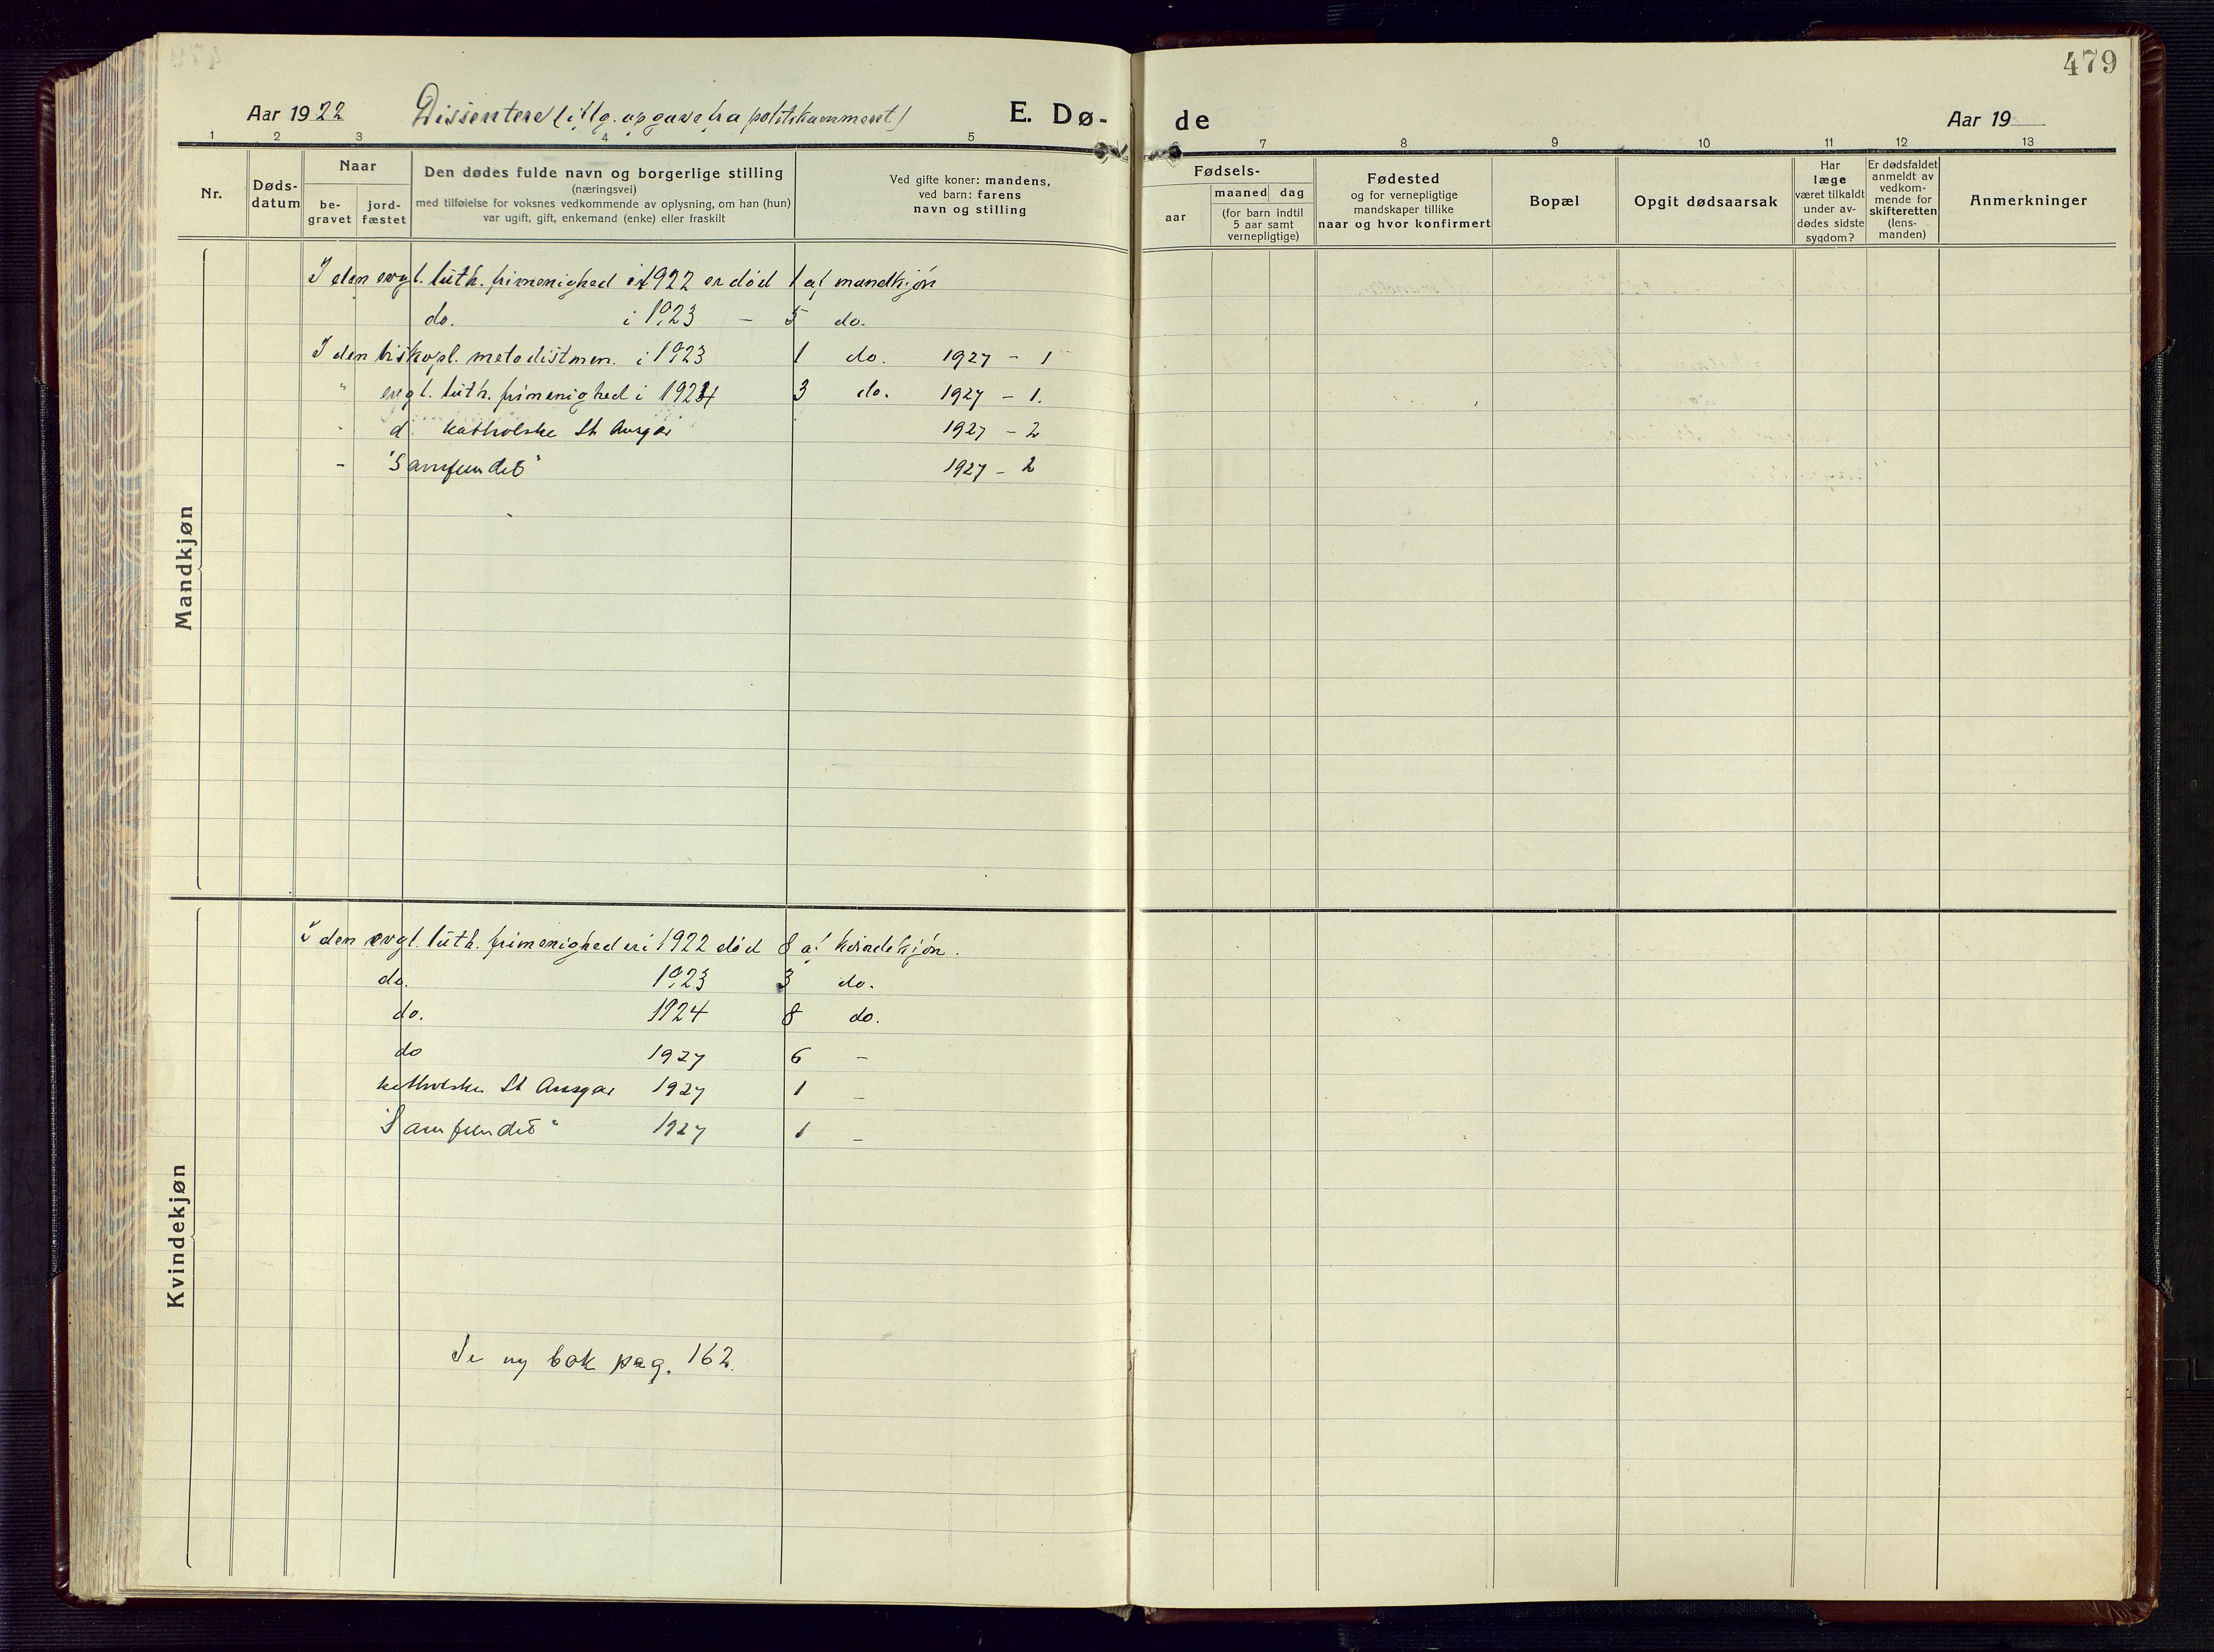 479
Aar 1922 Dissentere (iflg. opgave fra politikammeret) E. Dø- de Aar 19
1 2 3 4 5 7 8 9 10 11 12 13
Nr.
Døds-datum
Naar
be-gravet
jord-fæstet
Den dødes fulde navn og borgerlige stilling
(næringsvei)
med tilføielse for voksnes vedkommende av oplysning, om han (hun)
var ugift, gift, enkemand (enke) eller fraskilt
Ved gifte koner: mandens,
ved barn: farens
navn og stilling
Fødsels-
aar
maaned dag
(for barn indtil
5 aar samt
vernepligtige)
Fødested
og for vernepligtige
mandskaper tillike
naar og hvor konfirmert
Bopæl
Opgit dødsaarsak
Har
læge
været tilkaldt
under av-
dødes sidste
sygdom?
Er dødsfaldet
anmeldt av
vedkom-
mende for
skifteretten
(lens-
manden)
Anmerkninger
Mandkjøn
I den evgl. luth. frimenighed i 1922 er død 1 af mandkjøn
do. i 1923 – 5 do.
I den biskopl. metodistmen. i 1923 1 do. 1927 – 1
" evgl. luth. frimenighed i 1924 3 do. 1927 – 1.
" d. katholske St Ansgar 1927 – 2
– "Samfundet" 1927 – 2
Kvindekjøn
I den evgl. luth. frimenighed er i 1922 død 8 af kvindekjøn.
do. 1923 3 do.
do. 1924 8 do.
do 1927 6 –
katholske St Ansgar 1927 1 –
"Samfundet" 1927 1 –
Se ny bok pag. 162.